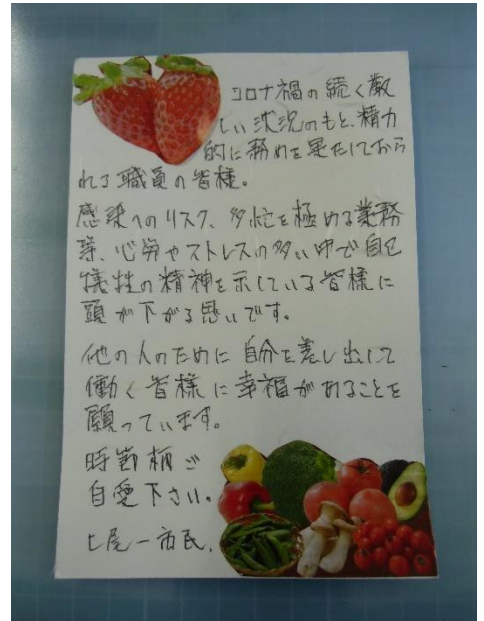 コロナ禍の続く厳
しい状況のもと、精力
的に務めを果たしておら
れる職員の皆様。
感染へのリスク、多忙を極める業務
等、心労やストレスの多い中で自己
犠牲の精神を示している皆様に
頭が下がる思いです。
他の人のために自分を差し出して
働く皆様に幸福があることを
願っています。
時節柄ご
自愛下さい。
上尾一市民.